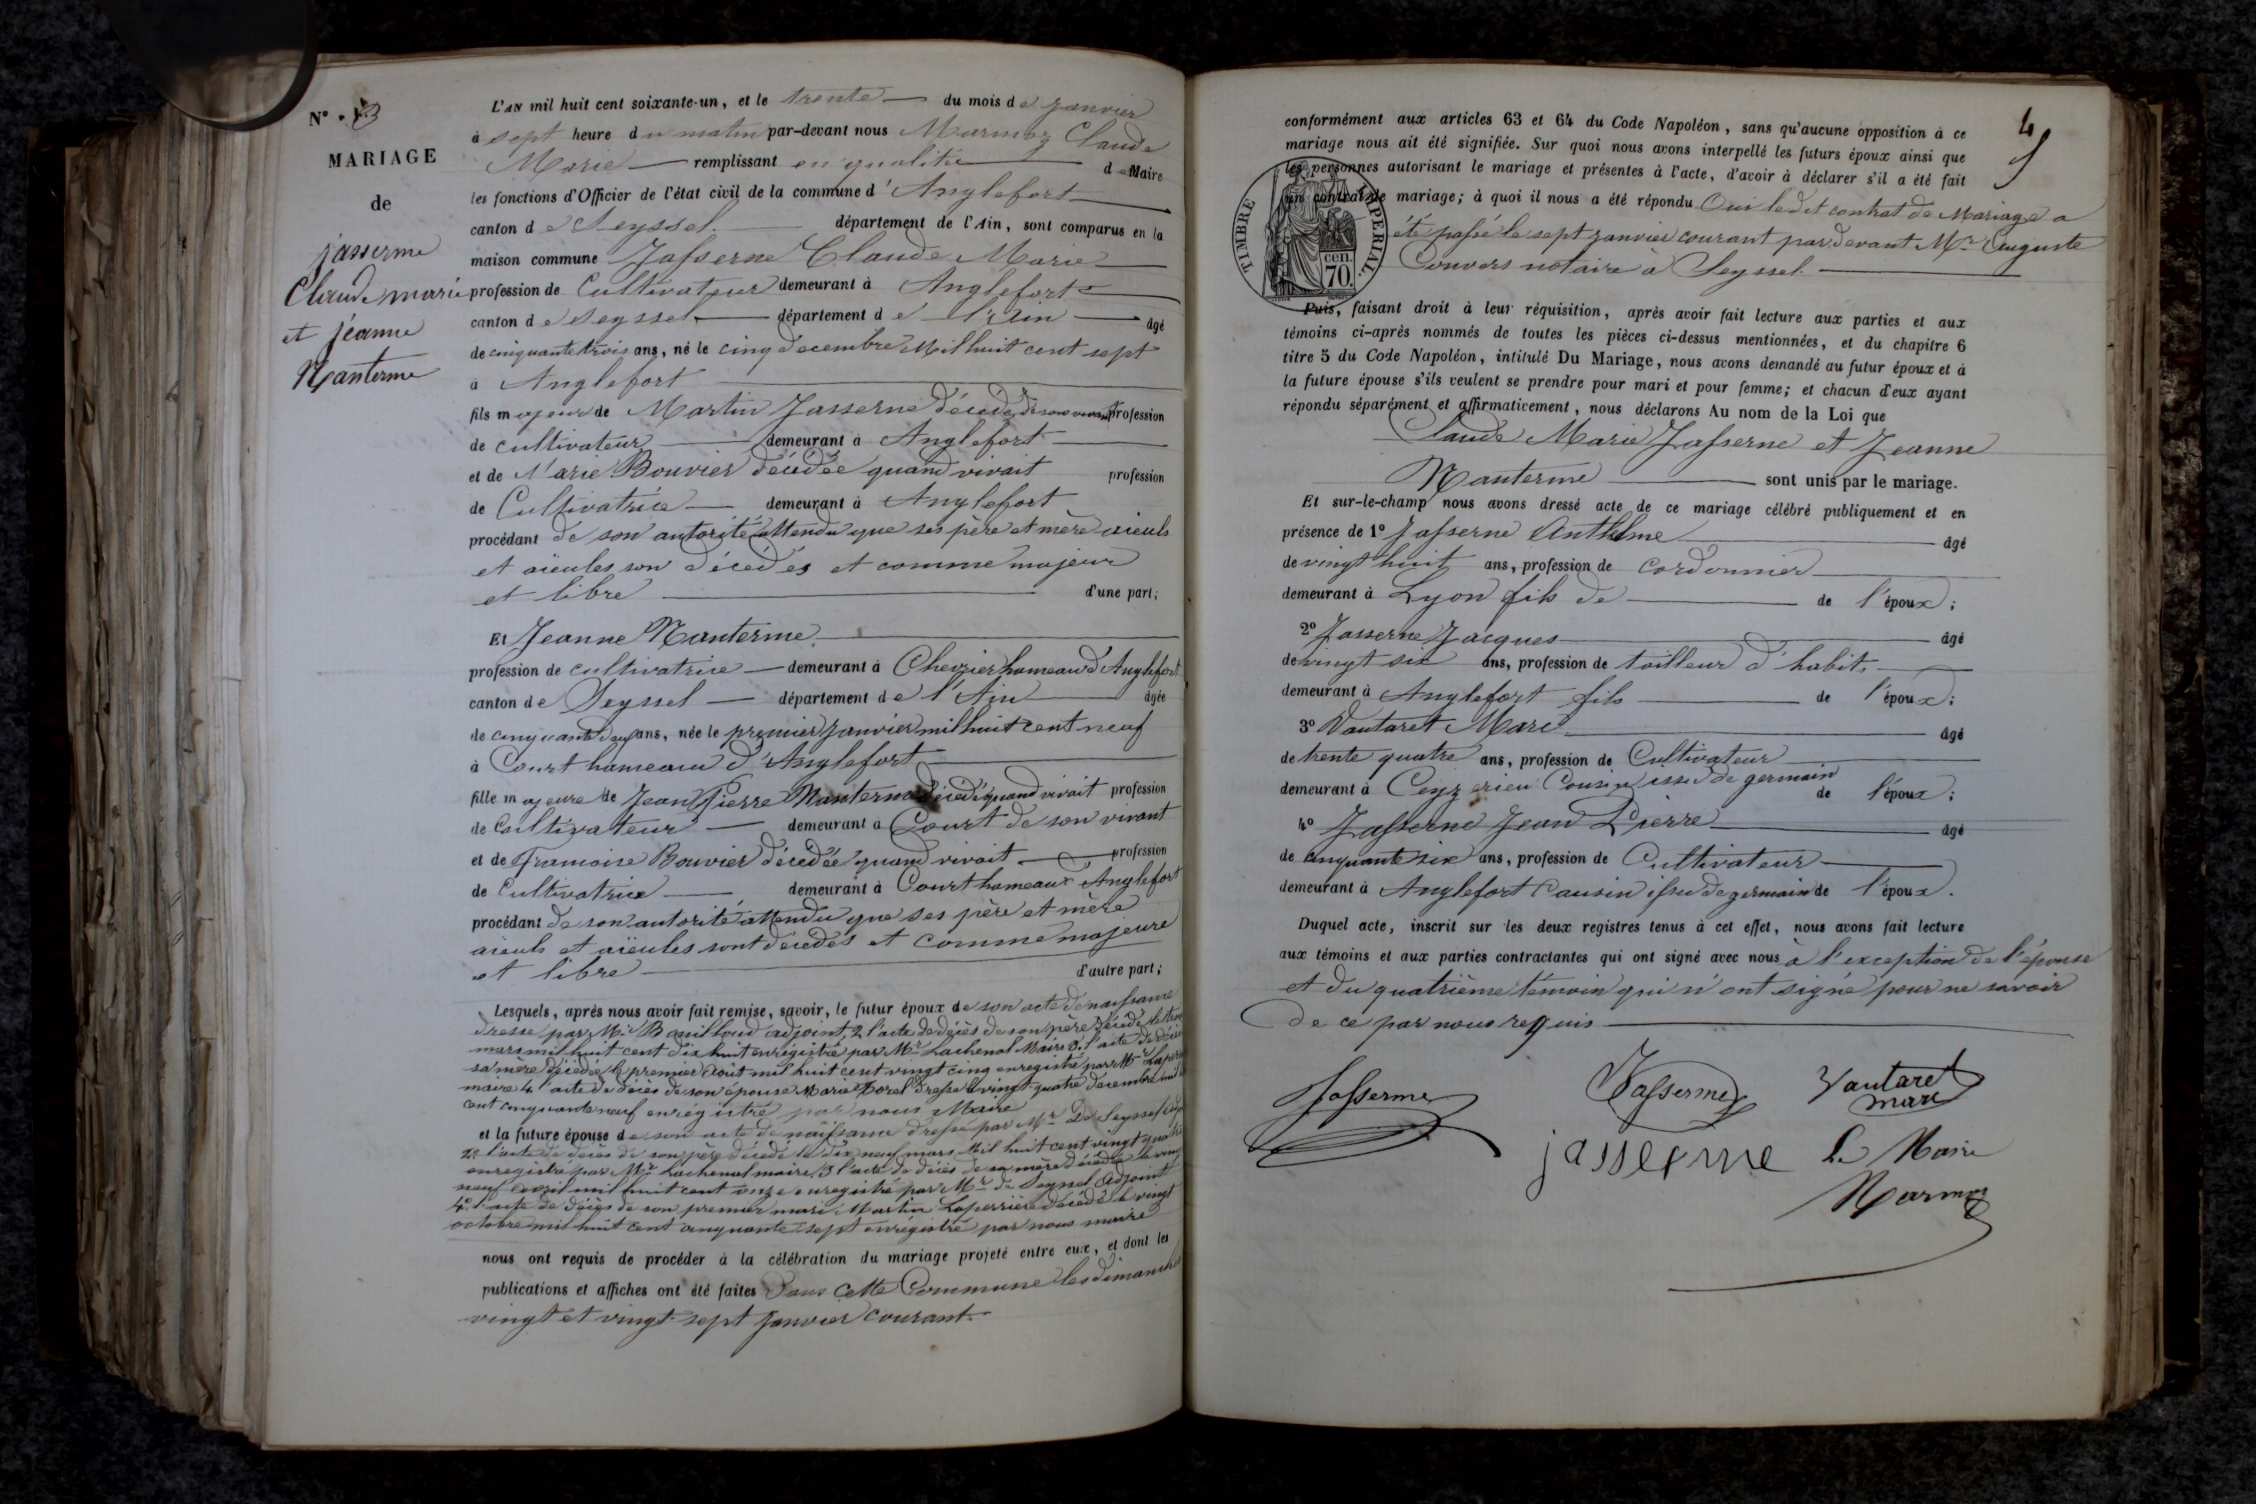 N° 3
MARIAGE
de
jasserme
Claude marie
et jéanne
Nanterme
L'AN mil huit cent soixante-un, et le trente du mois de janvier
à sept heure du matin par-devant nous Marmoz Claude
Marie remplissant en qualité de Maire
les fonctions d'Officier de l'état civil de la commune d'Anglefort
canton de Seyssel département de l'Ain, sont comparus en la
maison commune Jasserme Claude Marie
profession de Cultivateur demeurant à Anglefort
canton de Seyssel département de l'Ain âgé
de cinquante trois ans, né le cinq decembre Mil huit cent sept
à Anglefort
fils majeur de Martin Jasserme décédé de son vivant profession
de cultivateur demeurant à Anglefort
et de Marie Bouvier décédée quand vivait profession
de Cultivatrice demeurant à Anglefort
procédant de son autorité attendu que ses père et mère aïeuls
et aïeules son décédés et comme majeur
et libre d'une part;
Et Jeanne Nanterme
profession de cultivatrice demeurant à Chevrier hameau d'Anglefort
canton de Seyssel département de l'Ain âgée
de cinquante deux ans, née le premier janvier mil huit cent neuf
à Court hameau d'Anglefort
fille majeure de Jean Pierre Nanterme décédé quand vivait profession
de Cultivateur demeurant à Court de son vivant
et de Francoise Bouvier décédée quand vivait profession
de Cultivatrice demeurant à Court hameau d'Anglefort
procédant de son autorité attendu que ses père et mère
aïeuls et aïeules sont décédés et comme majeure
et libre d'autre part;
Lesquels, après nous avoir fait remise, savoir, le futur époux de son acte de naissance
dressé par Mr Bouilloud adjoint, 2 l'acte de décès de son père décédé le
mars mil huit cent dix huit enregistré par Mr Lachenal Maire 3. l'acte de décès
sa mère décédée le premier Août mil huit cent vingt cinq enregistré par Mr
maire 4 l'acte de décès de son épouse Marie Borel dressé le vingt quatre décembre mil
cent cinquante neuf enregistré par nous Maire
et la future épouse de son acte de naissance dressé par Mr De Seyssel
2° l'acte de décès de son père décédé le dix neuf mars Mil huit cent vingt quatre
enregistré par Mr Lachenal maire, 3 l'acte de décès de sa mère décédée le vingt
neuf avril mil huit cent onze enregistré par Mr de Seyssel Adjoint
4° l'acte de décès de son premier mari Martin Laperrière décédé le vingt
octobre mil huit cent cinquante sept enrégistré par nous maire
nous ont requis de procéder à la célébration du mariage projeté entre eux, et dont les
publications et affiches ont été faites dans cette Commune les dimanches
vingt et vingt sept janvier courant.
4
conformément aux articles 63 et 64 du Code Napoléon, sans qu'aucune opposition à ce
mariage nous ait été signifiée. Sur quoi nous avons interpellé les futurs époux ainsi que
les personnes autorisant le mariage et présentes à l'acte, d'avoir à déclarer s'il a été fait
un contrat de mariage; à quoi il nous a été répondu Oui ledit contrat de Mariage a
été passé le sept janvier courant par devant Mr Auguste
Convers notaire à Seyssel.
TIMBRE IMPERIAL.
70 cen.
Puis, faisant droit à leur réquisition, après avoir fait lecture aux parties et aux
témoins ci-après nommés de toutes les pièces ci-dessus mentionnées, et du chapitre 6
titre 5 du Code Napoléon, intitulé Du Mariage, nous avons demandé au futur époux et à
la future épouse s'ils veulent se prendre pour mari et pour femme; et chacun d'eux ayant
répondu séparément et affirmativement, nous déclarons Au nom de la Loi que
Claude Marie Jasserme et Jeanne
Nanterme sont unis par le mariage.
Et sur-le-champ nous avons dressé acte de ce mariage célébré publiquement et en
présence de 1° Jasserme Anthelme âgé
de vingt huit ans, profession de cordonnier
demeurant à Lyon fils de de l'époux;
2° Jasserme Jacques âgé
de vingt six ans, profession de tailleur d'habits
demeurant à Anglefort fils de l'époux;
3° Vautaret Marc âgé
de trente quatre ans, profession de Cultivateur
demeurant à Ceyzerieu Cousin issu de germain de l'époux;
4° Jasserme Jean Pierre âgé
de cinquante six ans, profession de Cultivateur
demeurant à Anglefort Cousin issu de germain de l'époux.
Duquel acte, inscrit sur les deux registres tenus à cet effet, nous avons fait lecture
aux témoins et aux parties contractantes qui ont signé avec nous à l'exception de l'épouse
et du quatrième témoin qui n'ont signé pour ne savoir
de ce par nous requis
Jasserme Jasserme Vautaret
marc
jasserme Le Maire
Marmoz